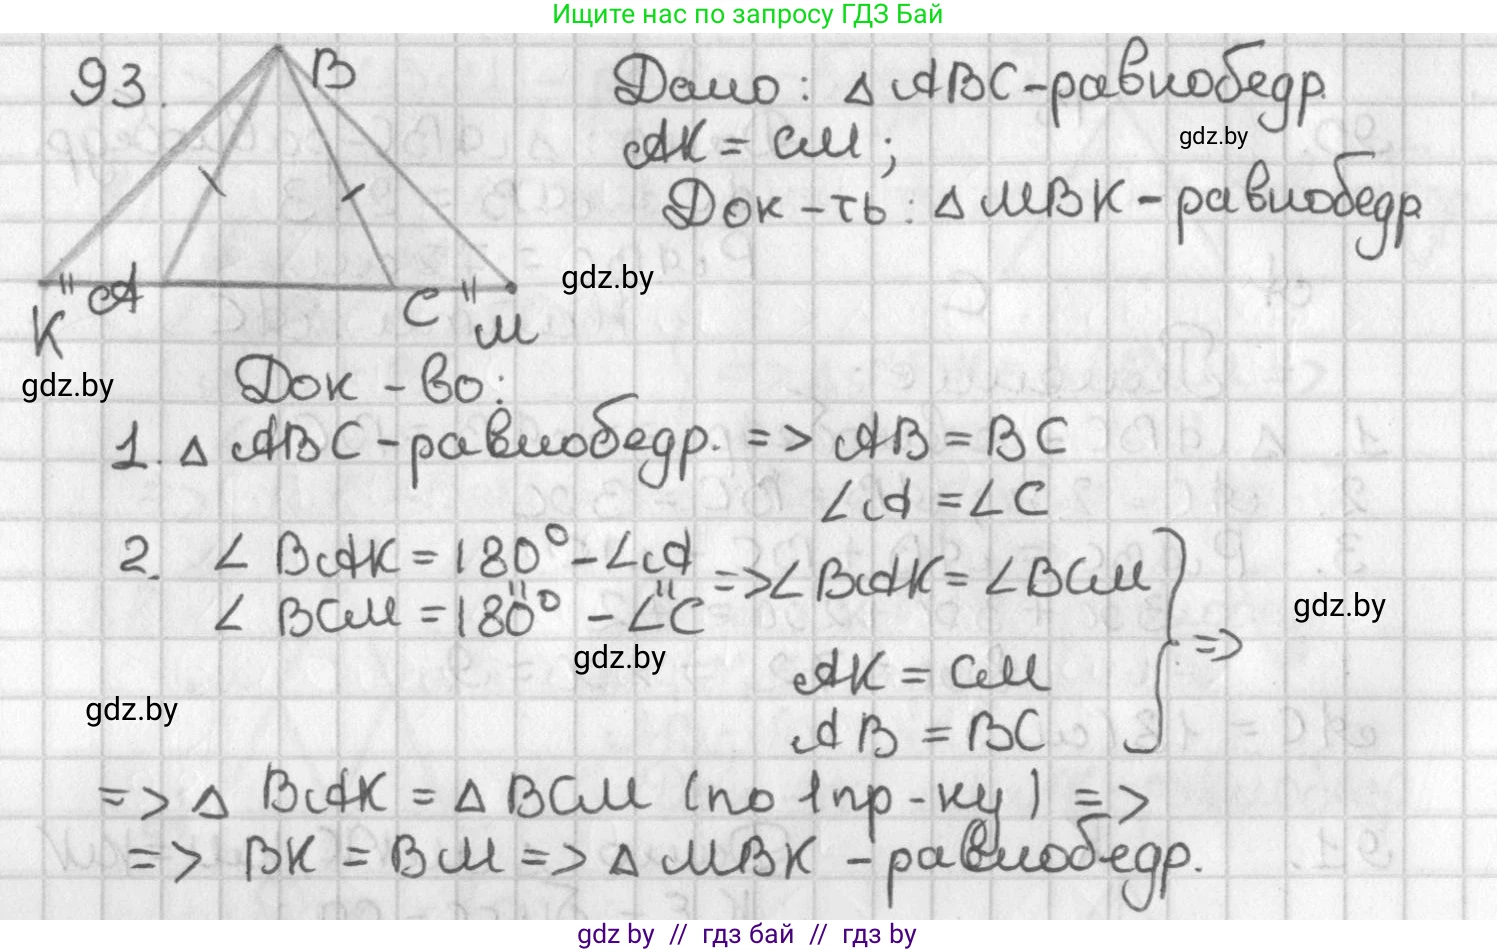 Ищите нас по запросу ГДЗ Бай
93.
B
Дано: △ ABC-равнобедр.
AK = CM;
gdz.by
Док-ть: △ MBK-равнобедр
gdz.by
K
A
C
M
gdz.by
Док-во:
1. △ ABC-равнобедр. => AB = BC
∠A = ∠C
2. ∠ BAK = 180° - ∠A
∠ BCM = 180° - ∠C
=> ∠BAK = ∠BCM
gdz.by
=>
gdz.by
AK = CM
gdz.by
AB = BC
=> △ BAK = △ BCM (по 1 пр-ку) =>
=> BK = BM => △ MBK - равнобедр.
gdz by // гдз бай // гдз by